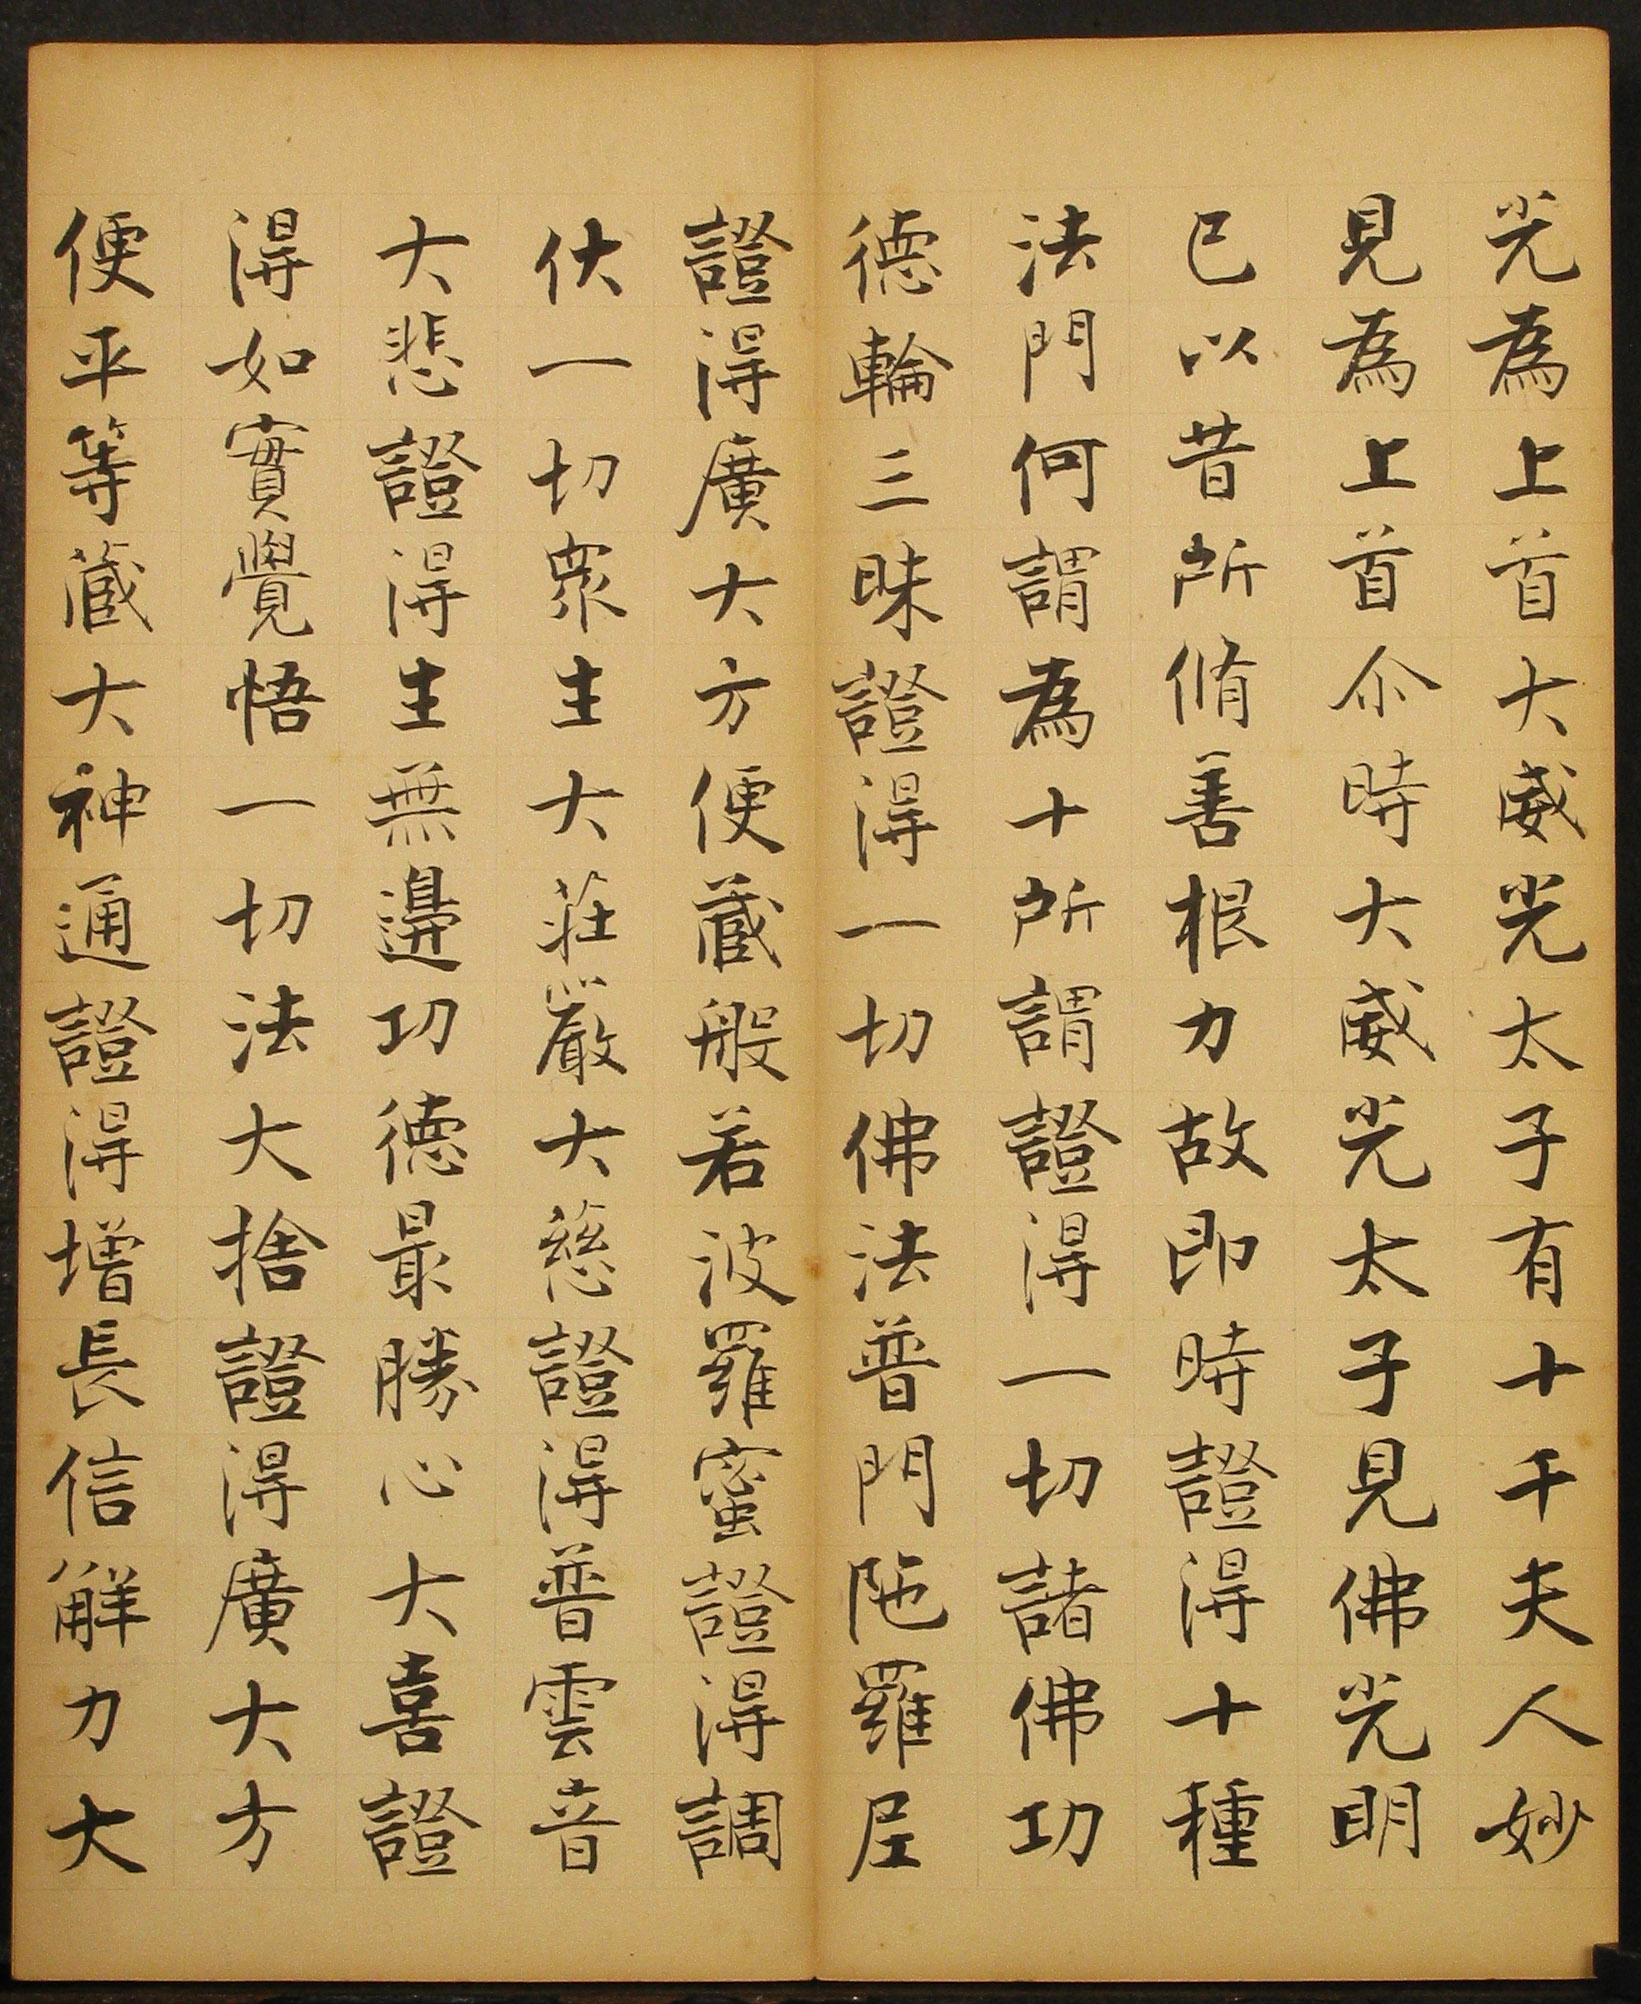 光為上首大威光太子有十千夫人妙
見為上首尒時大威光太子見佛光明
已以昔所脩善根力故即時證得十種
法門何謂為十所謂證得一切諸佛功
德輪三昧證得一切佛法普門陁羅尼
證得廣大方便蔵般若波羅蜜證得調
伏一切衆生大莊嚴大慈證得普雲音
大悲證得生無邊功德最勝心大喜證
得如實覺悟一切法大捨證得廣大方
便平等蔵大神通證得增長信解力大